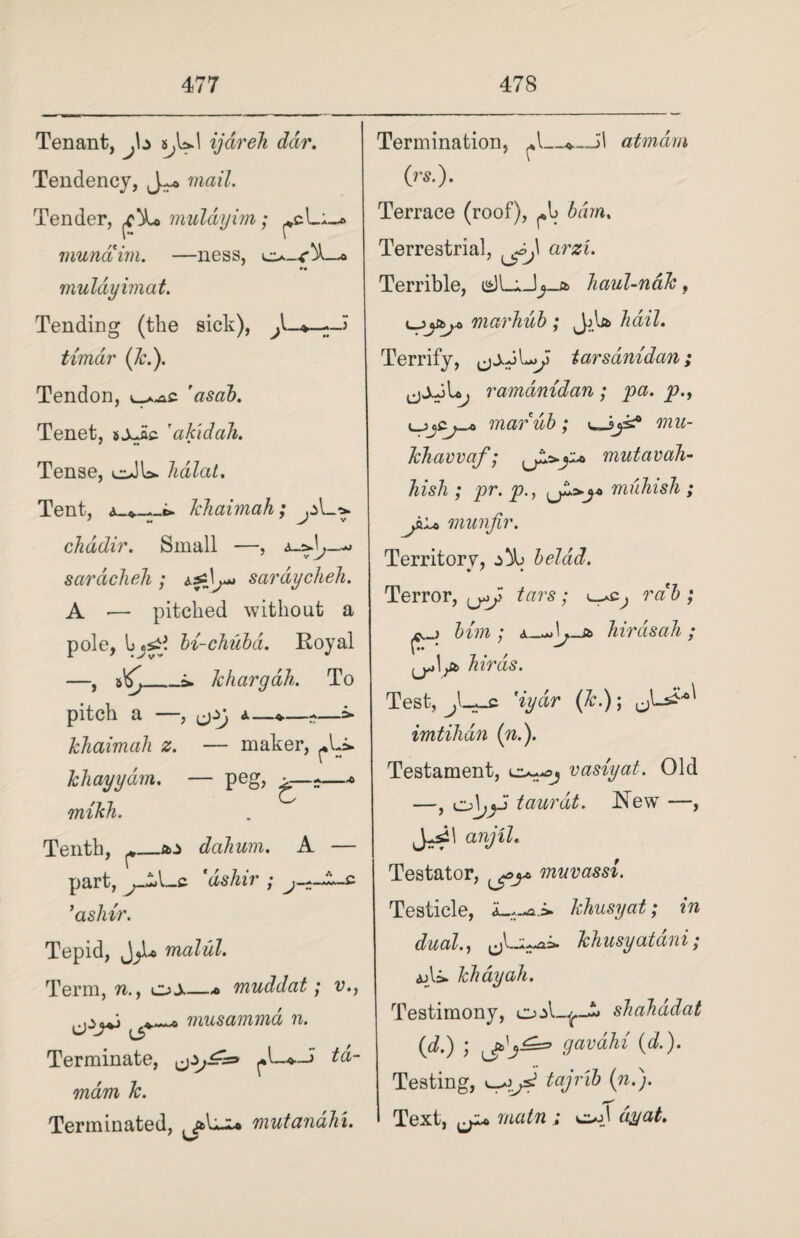 477
478
Tenant, اجاره دار ijáreh dár.
Tendency, میل mail.
Tender, ملایم muláyim; مناعم
muná'im. —ness, ملایمت
muláyimat.
Tending (the sick), تیمار
tímár (k.).
Tendon, عصب 'asab.
Tenet, عقیده 'akídah.
Tense, حالت hálat.
Tent, خیمه khaimah; چادر
chádir. Small —, سراچه
sarácheh; سرایچه saráycheh.
A — pitched without a
pole, بیچوبا bí-chúbá. Royal
—, خرگاه khargáh. To
pitch a —, خیمه زدن
khaimah z. — maker, خیام
khayyám. — peg, میخ
míkh.
Tenth, دهم dahum. A —
part, عاشر 'áshir; عشیر
'ashír.
Tepid, ملول malúl.
Term, n., مدت muddat; v.,
مسمی نمودن musammá n.
Terminate, تمام کردن ta-
mám k.
Terminated, متناهی mutanáhí.
Termination, اتمام atmám
(rs.).
Terrace (roof), بام bám.
Terrestrial, ارضی arzí.
Terrible, هولناک haul-nák,
مرهوب marhúb; هایل háil.
Terrify, ترسانیدن tarsánídan;
رمانیدن ramánídan; pa. p.,
مرعوب mar'úb; مخوف mu-
khavvaf; متوحش mutavah-
hish; pr. p., موحش múhish;
منفر munfir.
Territory, بلاد belád.
Terror, ترس tars; رعب ra'b;
بیم bím; هراسه hirásah;
هراس hirás.
Test, عیار 'iyár (k.); امتحان
imtihán (n.).
Testament, وصیت vasíyat. Old
—, تورات taurát. New —,
انجیل anjíl.
Testator, موصی muvassí.
Testicle, خصیة khusyat; in
dual., خصیتان khusyatáni;
خایه kháyah.
Testimony, شهادت shahádat
(d.); گواهی gaváhí (d.).
Testing, تجریب tajríb (n.).
Text, متن matn; آیت áyat.